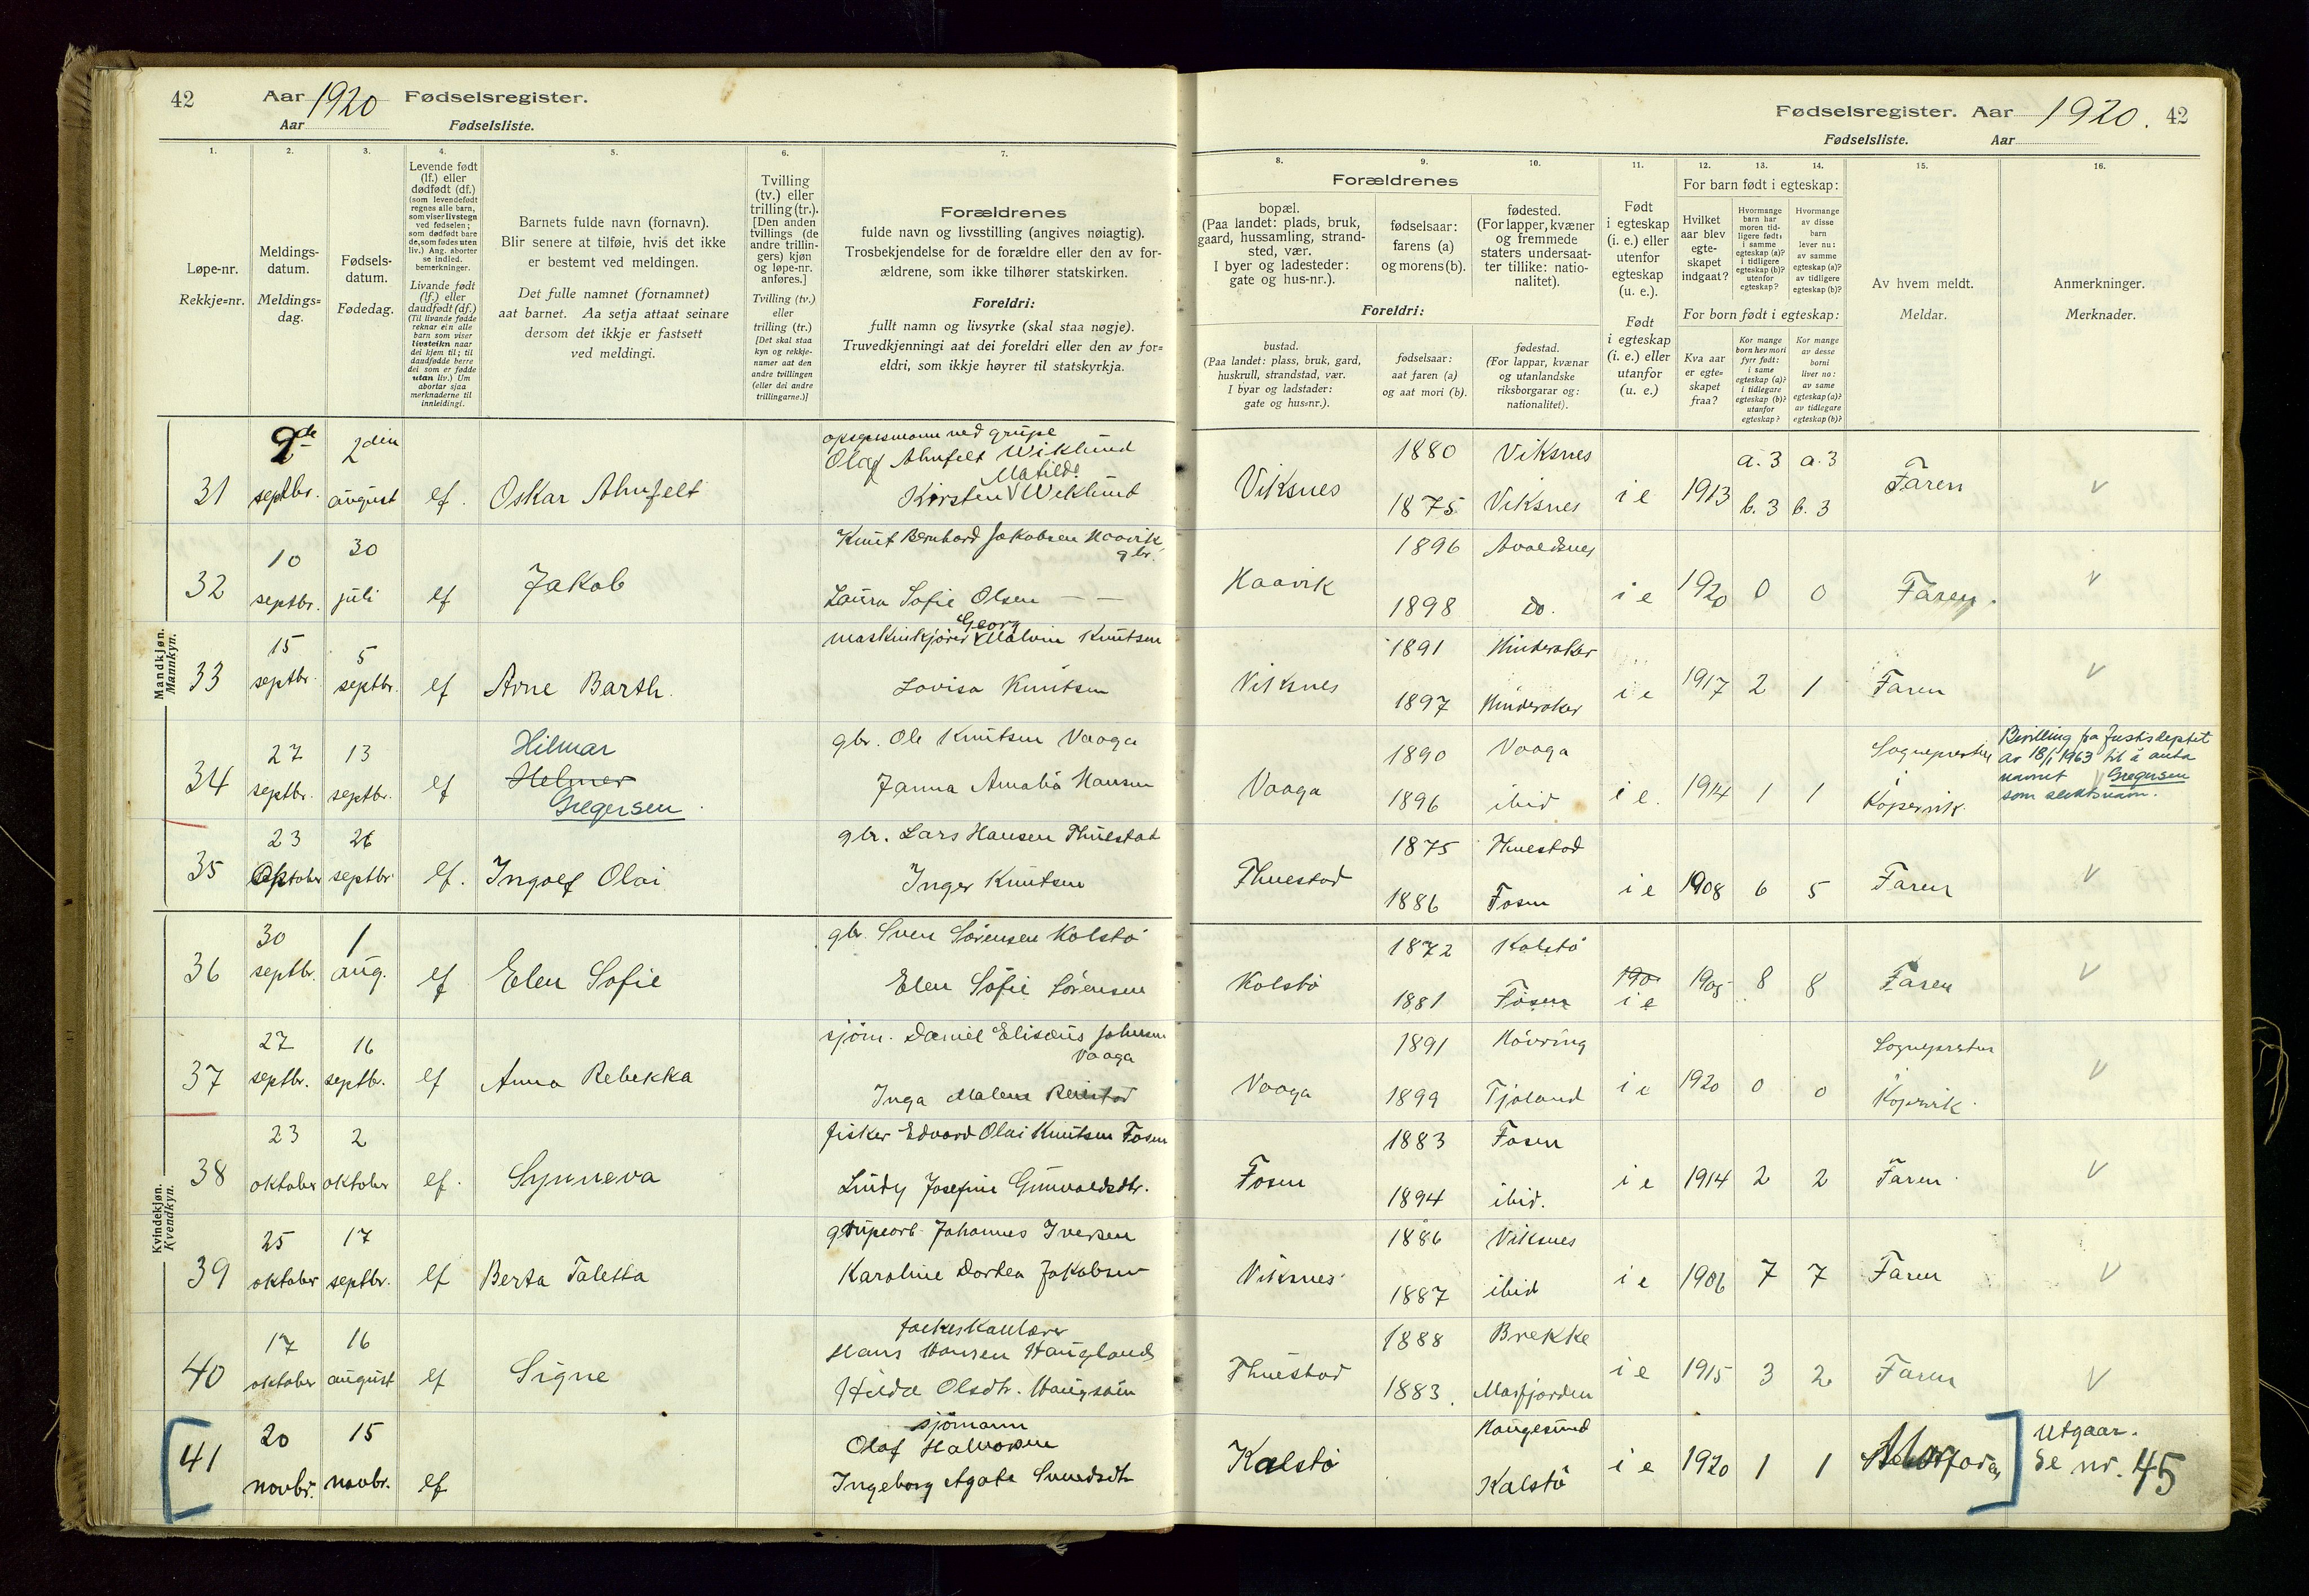 42 Aar 1920 Fødselsregister.
Aar Fødselsliste.
1. 2. 3. 4. 5. 6. 7.
Løpe-nr.
Rekkje=nr.
Meldings-
datum.
Meldings=
dag.
Fødsels-
datum.
Fødedag.
Levende født
(lf.) eller
dødfødt (df.)
(som levendefødt
regnes alle barn,
som viser livstegn
ved fødselen;
som dødfødt bare
de, som fødes uten
liv.) Ang. aborter
se indled.
bemerkninger.
Livande født
(lf.) eller
daudfødt (df.)
(Til livande fødde
reknar ein alle
barn som viser
livsteikn naar
dei kjem til; til
daudfødde berre
dei som er fødde
utan liv.) Um
abortar sjaa
merknaderne til
innleidingi.
Barnets fulde navn (fornavn).
Blir senere at tilføie, hvis det ikke
er bestemt ved meldingen.
Det fulle namnet (fornamnet)
aat barnet. Aa setja attaat seinare
dersom det ikkje er fastsett
ved meldingi.
Tvilling
(tv.) eller
trilling (tr.).
[Den anden
tvillings (de
andre trillin-
gers) kjøn
og løpe-nr.
anføres.]
Tvilling (tv.)
eller
trilling (tr.)
[Det skal staa
kyn og rekkje-
numer aat den
andre tvillingen
(eller dei andre
trillingarne.)]
Forældrenes
fulde navn og livsstilling (angives nøiagtig).
Trosbekjendelse for de forældre eller den av for-
ældrene, som ikke tilhører statskirken.
Foreldri:
fullt namn og livsyrke (skal staa nøgje).
Truvedkjenningi aat dei foreldri eller den av for=
eldri, som ikkje høyrer til statskyrkja.
Fødselsregister. Aar 1920. 42
Fødselsliste. Aar
8. 9. 10. 11. 12. 13. 14. 15. 16.
Forældrenes
bopæl.
(Paa landet: plads, bruk,
gaard, hussamling, strand-
sted, vær.
I byer og ladesteder:
gate og hus-nr.).
fødselsaar:
farens (a)
og morens (b).
fødested.
(For lapper, kvæner
og fremmede
staters undersaat-
ter tillike: natio-
nalitet).
Foreldri:
bustad.
(Paa landet: plass, bruk, gard,
huskrull, strandstad, vær.
I byar og ladstader:
gate og hus=nr.).
fødselsaar:
aat faren (a)
og aat mori (b).
fødestad.
(For lappar, kvænar
og utanlandske
riksborgarar og:
nationalitet).
Født
i egteskap
(i. e.) eller
utenfor
egteskap
(u. e.).
Født
i egteskap
(i. e.) eller
utanfor
(u. e.)
For barn født i egteskap:
Hvilket
aar blev
egte-
skapet
indgaat?
Hvormange
barn har
moren tid-
ligere født:
i samme
egteskap (a)?
i tidligere
egteskap (b)?
utenfor
egteskap?
Hvormange
av disse
barn
lever nu:
av samme
egteskap (a)?
av tidligere
egteskap (b)?
For born født i egteskap:
Kva aar
er egte=
skapet
fraa?
Kor mange
born hev mori
fyrr født:
i same
egteskap (a)?
i tidlegare
egteskap (b)?
utanfor
egteskap?
Kor mange
av desse
borni
liver no:
av same
egteskap (a)?
av tidlegare
egteskap (b)?
Av hvem meldt.
Meldar.
Anmerkninger.
Merknader.
Mandkjøn.
Mannkyn.
31 septbr. 2 din august lf. Oskar Ahnfelt
Olaf Ahnfelt Wiklund
Matilde
Kirsten Wiklund
Viksnes 1880 Viksnes 1875 Viksnes i e 1913 a. 3 b. 3 a. 3 b. 3 Faren V
32 10 septbr. 30 juli lf Jakob
Knut Bernhard Jakobsen Haavik
gbr.
Laura Sofie Olsen — —
Haavik 1896 Avaldsnes 1898 do. i e 1920 0 0 Faren. V
33 15 septbr. 5 septbr. lf Arne Barth.
Georg
maskinkjører Malvin Knutsen
Lovisa Knutsen
Viksnes 1891 Hinderaker 1897 Hinderaker i e 1917 2 1 Faren V
34 27 septbr. 13 septbr. lf Hilmar
Helmer
Gregersen
gbr. Ole Knutsen Vaaga
Janna Amalia Hansen
Vaaga 1890 Vaaga 1896 ibid i e. 1914 1 1 Sognepresten
Kopervik.
Bevilling fra Justisdeptet
av 18/1 1963 til å anta
navnet Gregersen
som slektsnavn.
35 23 Oktober 26 septbr lf. Ingolf Olai
gbr. Lars Hansen Thuestad
Inger Knutsen
Thuestad 1875 Thuestad 1886 Fosen i e 1908 6 5 Faren V
Kvindekjøn.
Kvendkyn.
36 30 septbr. 1 aug. lf Elen Sofie
gbr. Sven Sørensen Kolstø
Elen Sofie Sørensen
Kolstø 1872 Kolstø 1881 Fosen 190 i e 1905 8 8 Faren V
37 27 septbr. 16 septbr. lf Anna Rebekka
sjøm. Daniel Elisæus Johnsen
Vaaga
Inga Malene
Vaaga 1891 Høvring 1899 Tjøland i e 1920 0 0 Sognepresten
Kopervik. V
38 23 oktober 2 oktober lf. Synneva
fisker Edvard Olai Knutsen Fosen
Lindy Josefine Gunvaldsdtr.
Fosen 1883 Fosen 1894 ibid. i e 1914 2 2 Faren V
39 25 oktober 17 septbr. lf Berta Taletta
grupearb. Johannes Iversen
Karoline Dortea Jakobsen
Viksnes 1886 Viksnes 1887 ibid i e 1906 7 7 Faren V
40 17 oktober 16 august lf Signe
Hans Hansen Haugland
Hilda Olsdtr. Haugsøen
Thuestad 1888 Brekke 1883. Masfjorden i e 1915 3 2 Faren V
41 20 novbr. 15 novbr. lf
sjømann
Olaf Halvorsen
Ingeborg Agate Svendsdtr
Kalstø Haugesund Kalstø i e 1920 1 1 Morfaren
Utgaar.
Se nr. 45